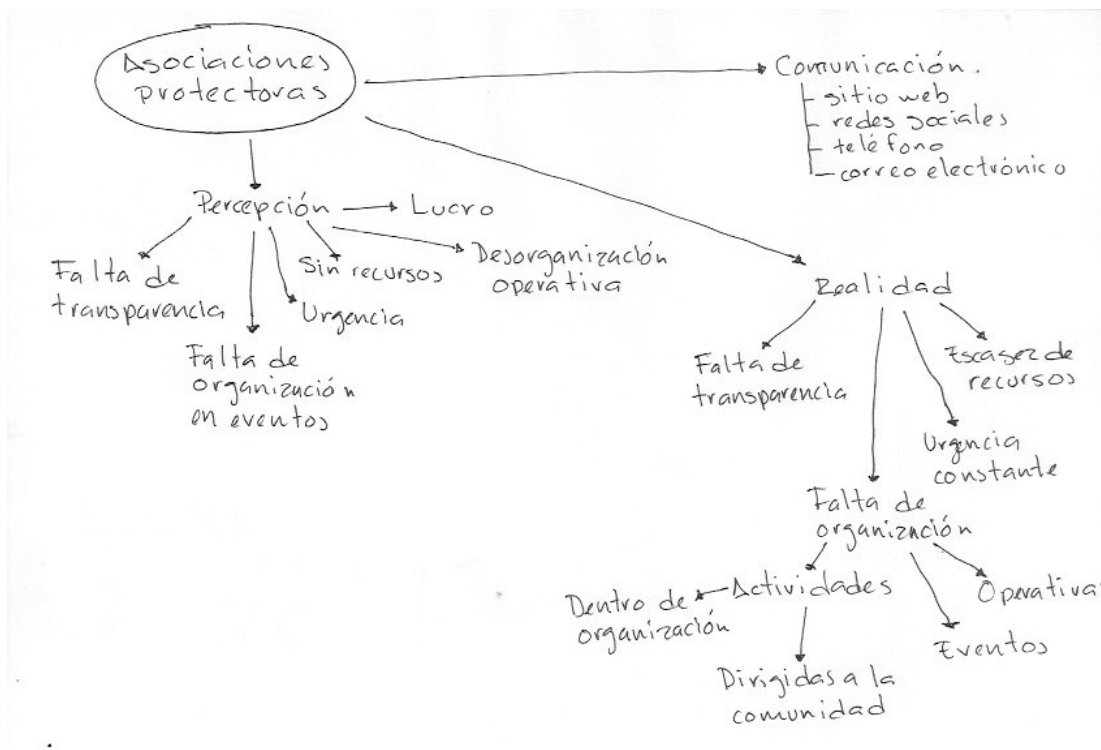 Asociaciones
protectoras
Comunicación.
sitio web
redes sociales
teléfono
correo electrónico
Percepción
Lucro
Falta de
transparencia
Falta de
organización
en eventos
Urgencia
Sin recursos
Desorganización
operativa
Realidad
Falta de
transparencia
Escasez de
recursos
Urgencia
constante
Falta de
organización
Actividades
Dentro de
organización
Dirigidas a la
comunidad
Eventos
Operativa